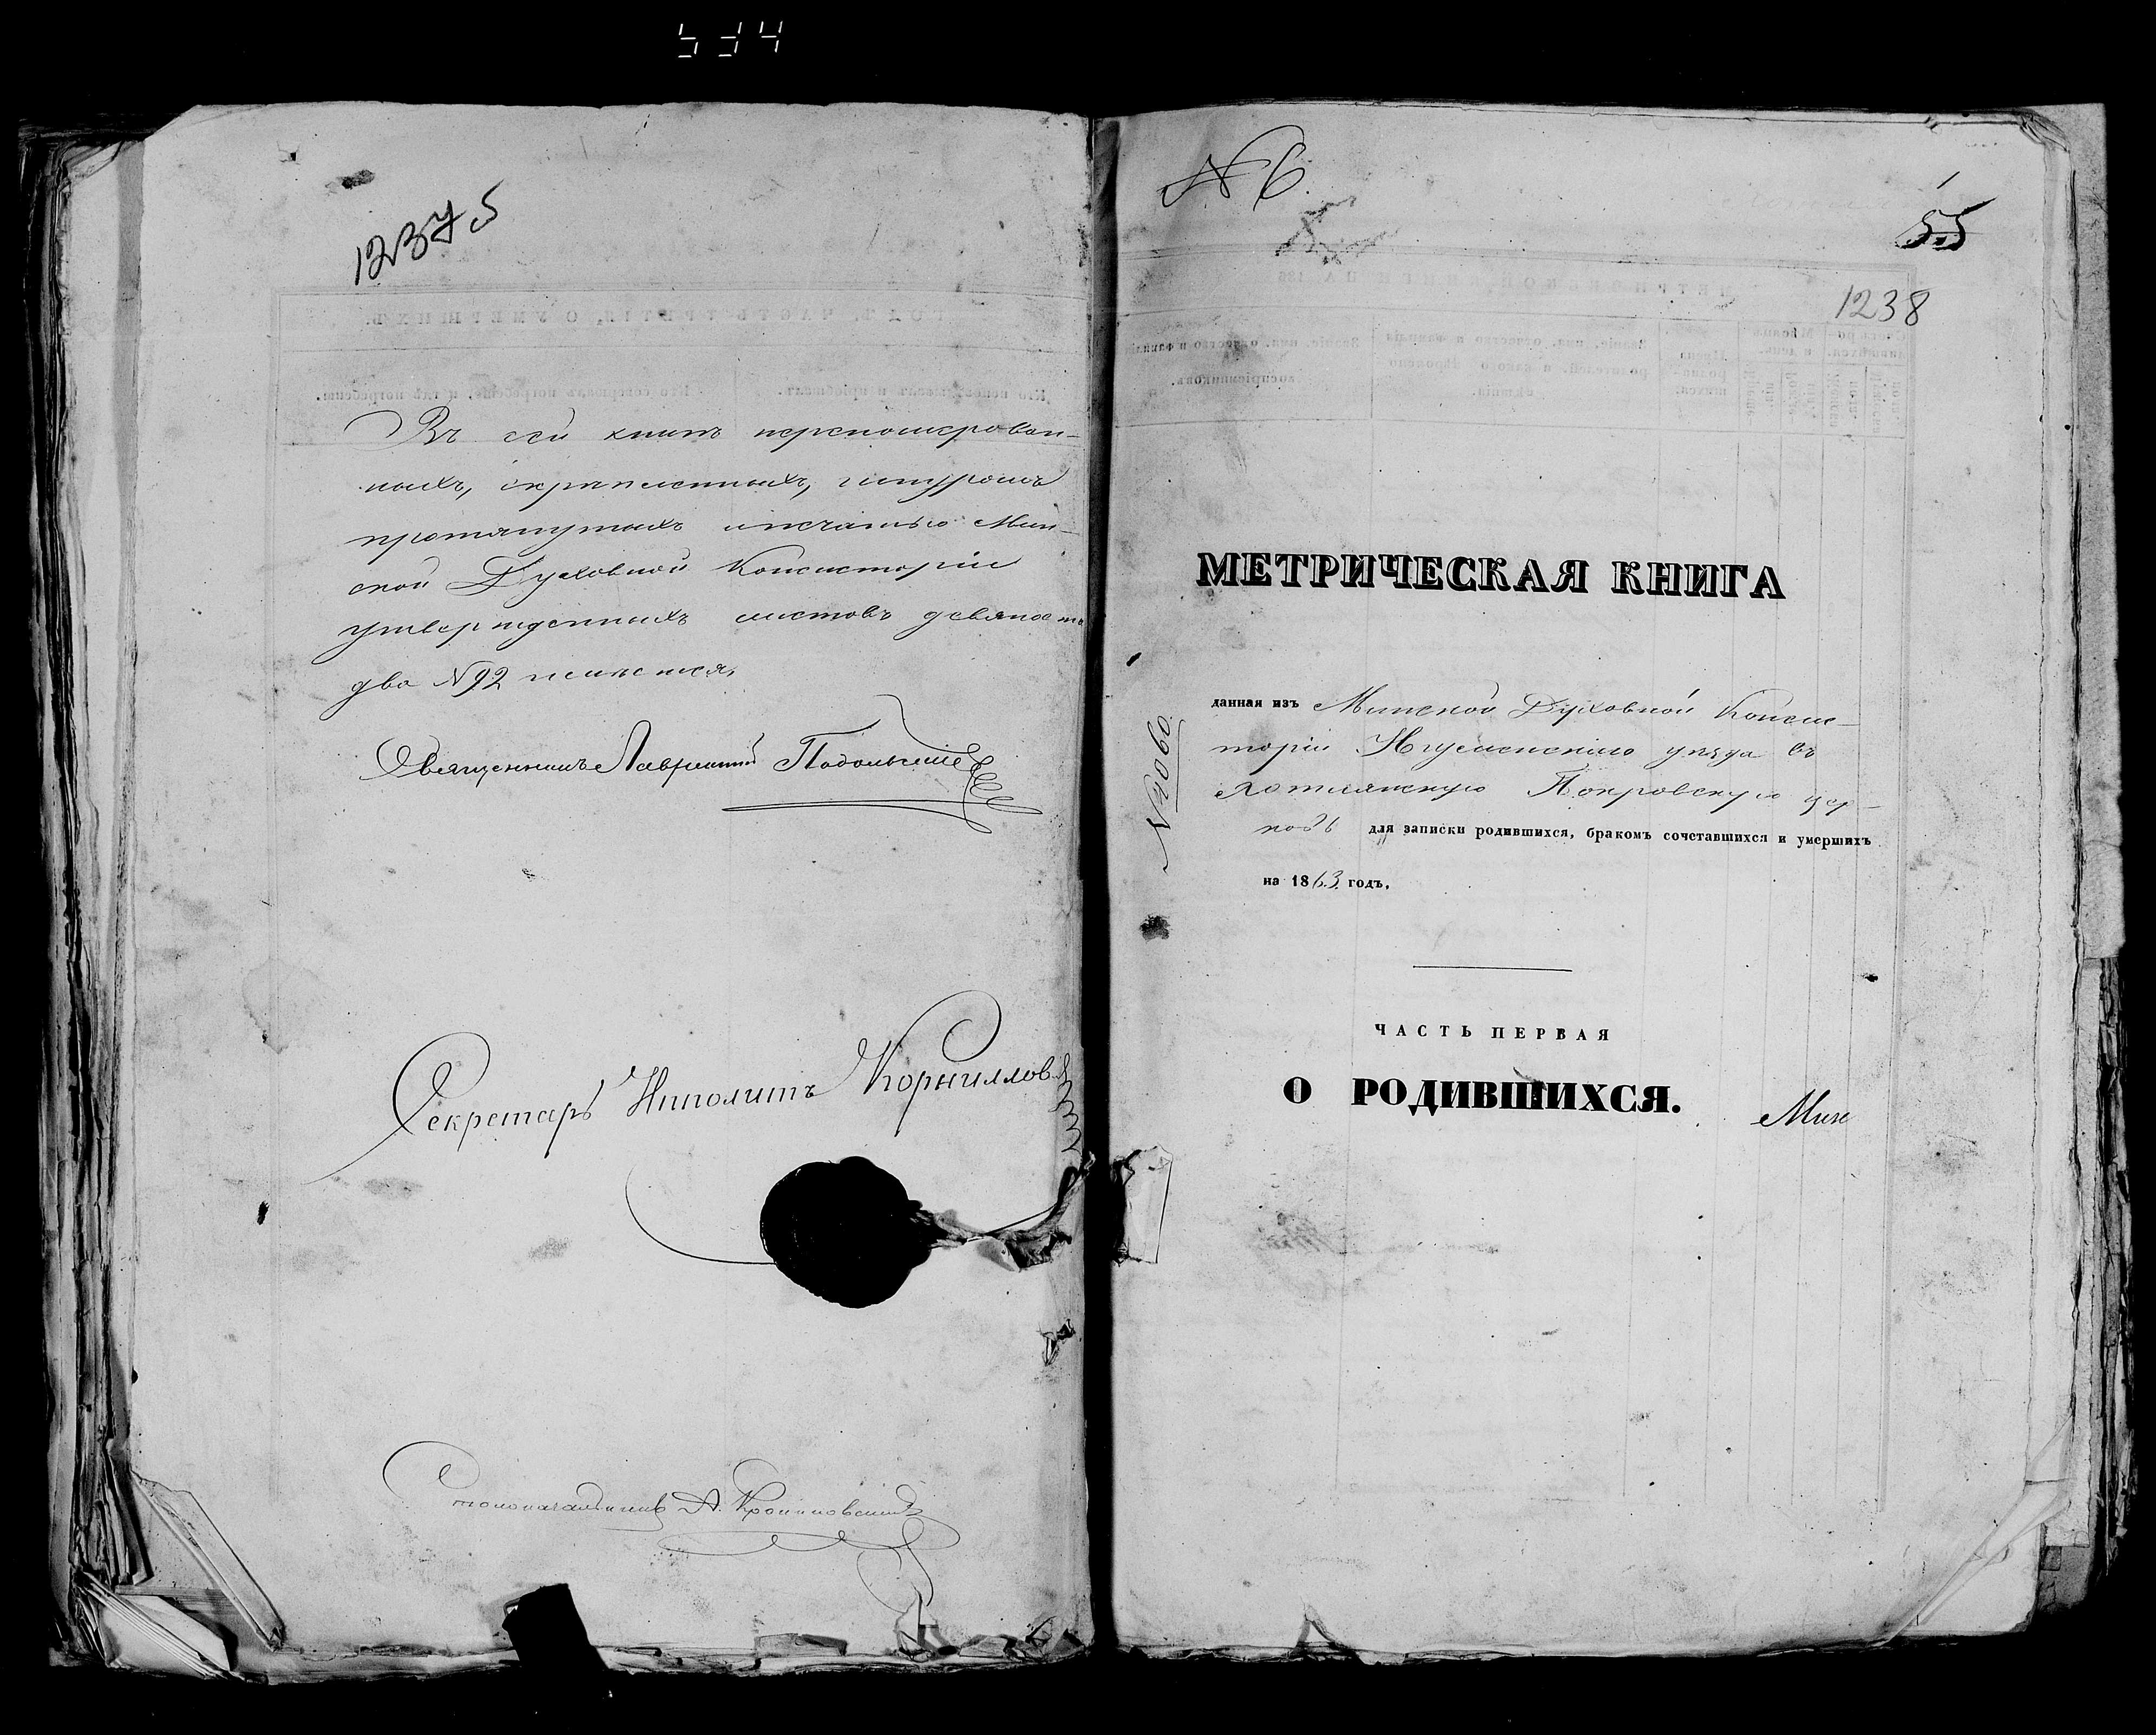 534
12375
Въ сей книгѣ перенумерован-
ныхъ, скрѣпленныхъ, шнуромъ
протянутыхъ и печатью Мин-
ской Духовной Консисторіи
утвержденныхъ листовъ девяносто
два N92 имѣется.
Священникъ Лаврентій
Секретарь Ипполитъ Корниллов
Столоначальникъ А.
N 6.
1
55
1238
МЕТРИЧЕСКАЯ КНИГА
данная изъ Минской Духовной Консис-
торіи Игуменскаго уѣзда въ
Хотлянскую Покровскую цер-
ковь для записки родившихся, бракомъ сочетавшихся и умершихъ
на 1863 годъ.
N 4060
ЧАСТЬ ПЕРВАЯ
О РОДИВШИХСЯ.
Мин